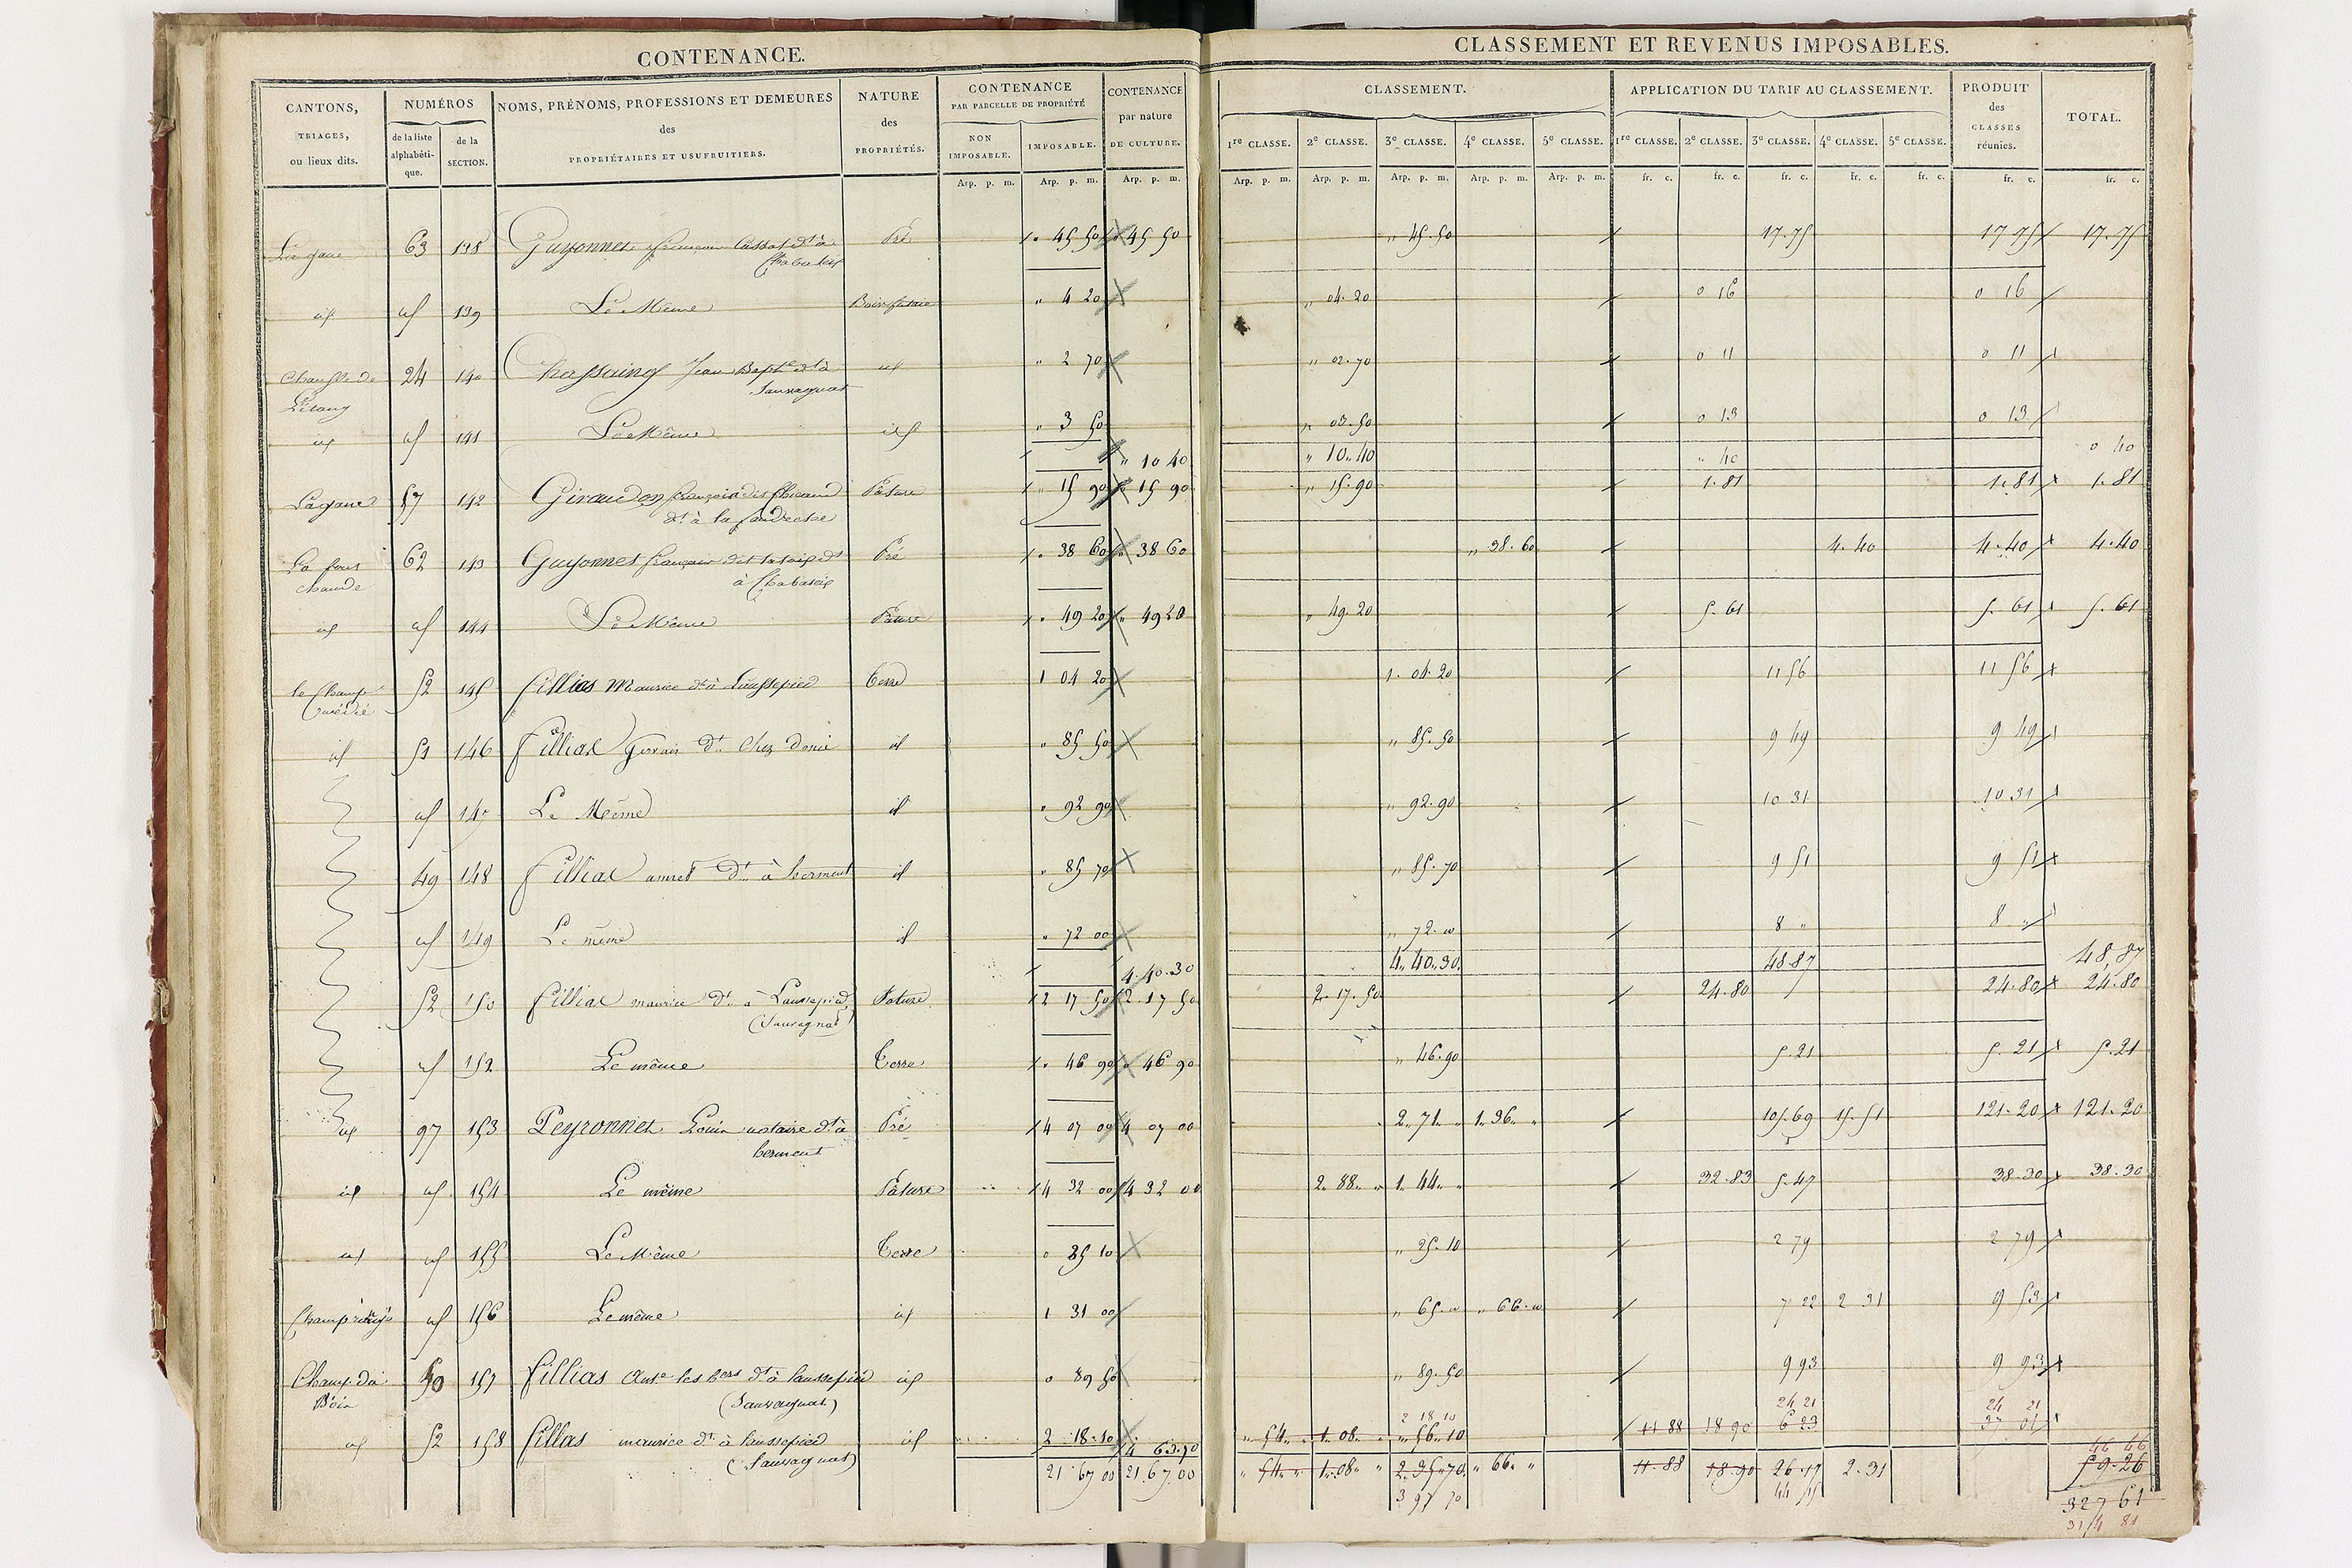 CONTENANCE.
CLASSEMENT ET REVENUS IMPOSABLES.
CANTONS, TRIAGES, ou lieux dits.
NUMÉROS
de la liste alphabétique.
de la SECTION.
NOMS, PRÉNOMS, PROFESSIONS ET DEMEURES
des
PROPRIÉTAIRES ET USUFRUITIERS.
NATURE
des
PROPRIÉTÉS.
CONTENANCE
PAR PARCELLE DE PROPRIÉTÉ
NON IMPOSABLE.
IMPOSABLE.
CONTENANCE
par nature
DE CULTURE.
CLASSEMENT.
1re CLASSE. 2e CLASSE. 3e CLASSE. 4e CLASSE. 5e CLASSE.
APPLICATION DU TARIF AU CLASSEMENT.
1re CLASSE. 2e CLASSE. 3e CLASSE. 4e CLASSE. 5e CLASSE.
PRODUIT
des
CLASSES
réunies.
TOTAL.
Arp. p. m. Arp. p. m. Arp. p. m. Arp. p. m. Arp. p. m. Arp. p. m. Arp. p. m. Arp. p. m. fr. c. fr. c. fr. c. fr. c. fr. c. fr. c. fr. c.
63 138 Guyonnet dt à Pré " 45 50 " 45 50 " 45.50 17.75 17 75 17.75
id id 139 Le Même Bois futaie " 4 20 " 04.20 0 16 0 16
24 140 Chassaing Jean Bapte dt à id " 2 70 " 02.70 0 11 0 11
Sauvagnat
L'étang
id id 141 Le Même id " 3 50 " 03.50 0 13 0 13
" 10 40 " 10.40 " 40 0 40
Lagane 57 142 Giraudon dit Pâture " 15 90 " 15 90 " 15.90 1.81 1.81 1.81
dt à la
La font 62 143 Guyonnet françois dit dt Pré " 38 60 " 38 60 " 38.60 4.40 4.40 4.40
chaude à
id id 144 Le Même Pâture " 49 20 " 49 20 " 49.20 5.61 5.61 5.61
le Champ 52 145 fillias Maurice dt à Laussepied Terre 1 04 20 1.04.20 11 56 11 56
id 51 146 fillias dt Chez id " 85 50 " 85.50 9 49 9 49
id 147 Le Même id " 92 90 " 92.90 10 31 10 31
49 148 fillias dt à herment id " 85 70 " 85.70 9 51 9 51
id 149 Le même id " 72 00 " 72.00 8 " 8 "
4.40.30 4.40.30 48.87 48.87
52 150 fillias maurice dt à Laussepied Pature 2 17 50 2.17 50 2.17.50 24.80 24.80 24.80
(Sauvagnat)
id 152 Le même Terre " 46 90 " 46 90 " 46.90 5.21 5.21 5.21
id 97 153 Peyronnet Louis notaire dt à Pré 4 07 00 4 07 00 2.71 " 1.36 " 105.69 15.51 121.20 121.20
herment
id id 154 Le même Pâture 4 32 00 4 32 00 2.88 " 1.44 " 32.83 5.47 38.30 38.30
id id 155 Le Même Terre 0 25 10 " 25.10 2 79 2 79
id 156 Le même id 1 31 00 " 65.00 " 66.00 7 22 2 31 9 53
Champ du 50 157 fillias dt à Laussepied id 0 89 50 " 89.50 9 93 9 93
Bois (Sauvagnat)
2 18 10 24 21 24 21
id 52 158 fillias maurice dt à Laussepied id 2 18.10 " 54 " 1.08 " " 56.10 11 88 18 90 6 23 37 01
(Sauvagnat) 4 63.70 46 46
21 67 00 21.67.00 " 54 " 1.08 " 2.35.70 " 66 " 11.88 18.90 26.17 2.31 59.26
3 97 70 44 15 327 61
314 81